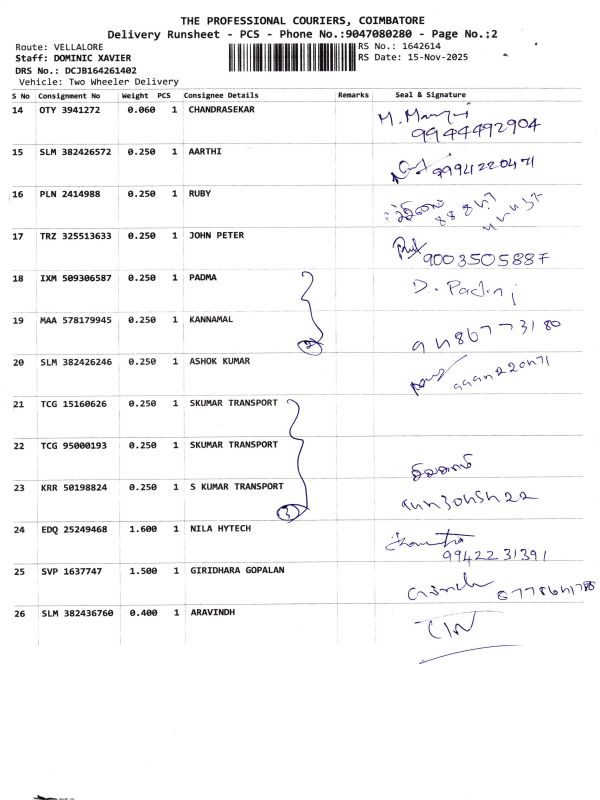 THE PROFESSIONAL COURIERS, COIMBATORE
Delivery Runsheet - PCS - Phone No.:9047080280 - Page No.:2
Route: VELLALORE RS No.: 1642614
Staff: DOMINIC XAVIER RS Date: 15-Nov-2025
DRS No.: DCJB164261402
Vehicle: Two Wheeler Delivery
S No Consignment No Weight PCS Consignee Details Remarks Seal & Signature
14 OTY 3941272 0.060 1 CHANDRASEKAR
9944492904
15 SLM 382426572 0.250 1 AARTHI
9994220471
16 PLN 2414988 0.250 1 RUBY
17 TRZ 325513633 0.250 1 JOHN PETER
9003505887
18 IXM 509306587 0.250 1 PADMA
19 MAA 578179945 0.250 1 KANNAMAL
2
20 SLM 382426246 0.250 1 ASHOK KUMAR
21 TCG 15160626 0.250 1 SKUMAR TRANSPORT
22 TCG 95000193 0.250 1 SKUMAR TRANSPORT
23 KRR 50198824 0.250 1 S KUMAR TRANSPORT
3
24 EDQ 25249468 1.600 1 NILA HYTECH
9942231391
25 SVP 1637747 1.500 1 GIRIDHARA GOPALAN
26 SLM 382436760 0.400 1 ARAVINDH